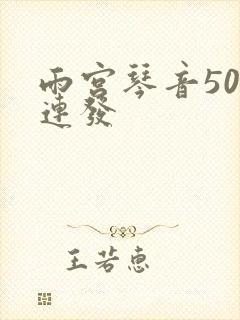 雨宮琴音50
連發
王若惠